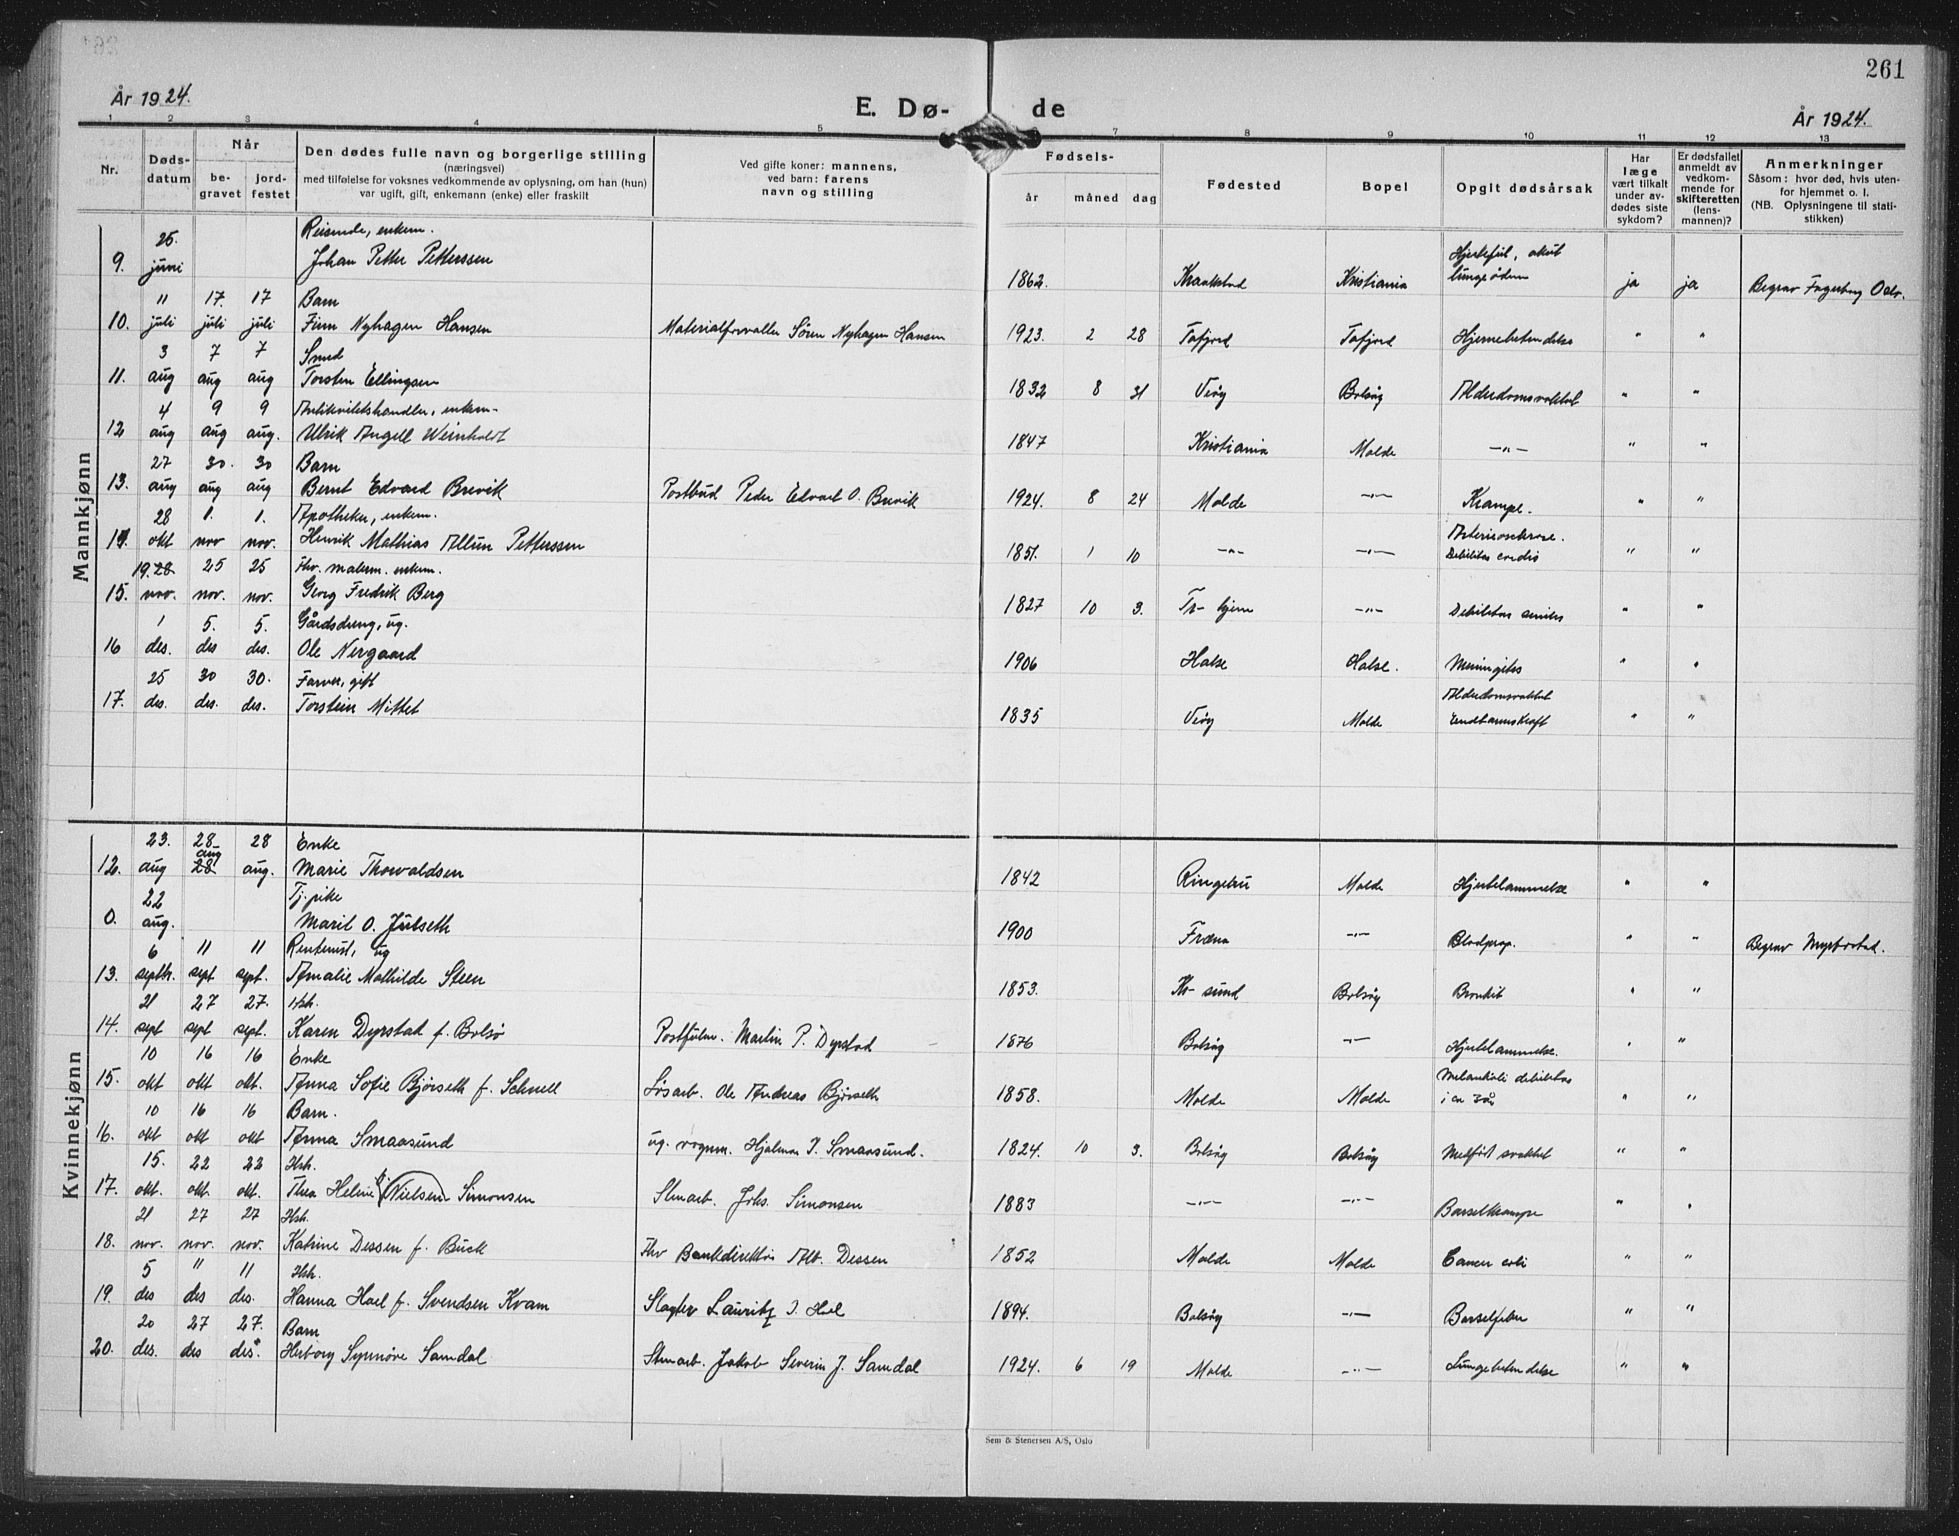 261
År 1924.
E. Dø- de
År 1924.
1 2 3 4 5 7 8 9 10 11 12 13
Nr.
Døds-datum
Når
be-gravet
jord-festet
Den dødes fulle navn og borgerlige stilling
(næringsvei)
med tilføielse for voksnes vedkommende av oplysning, om han (hun)
var ugift, gift, enkemann (enke) eller fraskilt
Ved gifte koner: mannens,
ved barn: farens
navn og stilling
Fødsels-
år måned dag
Fødested
Bopel
Opgit dødsårsak
Har læge vært tilkalt under av-dødes siste sykdom?
Er dødsfallet anmeldt av vedkom-mende for skifteretten (lens-mannen)?
Anmerkninger
Såsom: hvor død, hvis uten-
for hjemmet o. l.
(NB. Oplysningene til stati-
stikken)
Mannkjønn
25. Reisende, enkem. Hjertefeil, akut
9. juni Johan Petter Petterssen 1862. Kraakstad Kristiania lungeødem ja ja Begrav Fagerborg Oslo.
11 17. 17 Barn
10. juli juli juli Finn Nyhagen Hansen Materialforvalter Søren Nyhagen Hansen 1923. 2 28 Tafjord Tafjord Hjernebetendelse " "
3 7 7 Smed
11. aug aug aug Torsten Ellingsen 1832 8 31 Veøy Bolsøy Alderdomsvakhet " "
4 9 9 Antikvitetshandler, enkem.
12 aug aug aug. Ulrik Angell Weinholdt 1847 Kristiania Molde —"— " "
27 30. 30 Barn
13. aug aug aug Bernt Edvard Brevik Postbud Peder Edvart O. Brevik 1924. 8 24 Molde —"— Krampe. " "
28 1. 1. Apotheker, enkem. Arteriosclerose.
14. okt nov nov. Henrik Mathias Allum Petterssen 1851. 1 10 —"— —"— Debilitas cordis " "
19. 28 25 25 Fhv. malerm. enkem.
15. nov. nov. nov. Georg Fredrik Berg 1827 10 3. Tr-hjem —"— Debilitas senilis " "
1 5. 5. Gårdsdreng, ug.
16 des. des des. Ole Nergaard 1906 Halse Halse. Meningites " "
25 30 30. Farver, gift Alderdomsvakhet
17. des. des. des. Torstein Mittet 1835 Veøy Molde " "
Kvinnekjønn
23. 28 28 Enke
aug
12. aug 28 aug. Marie Thorvaldsen 1842 Ringebu Molde Hjertelammelse " "
22 Tj. pike
0. aug. Marit O. Julseth 1900 Fræna —"— Blodprop. " " Begrav Myrbostad.
6 11 11 Rentenist, ug
13. septbr. sept sept. Amalie Mathilde Steen 1853. Kr-sund Bolsøy Bronkit " "
21 27 27. Hsh.
14. sept sept sept. Karen Dyrstad f. Bolsø Postfulm. Martin P. Dyrstad 1876 Bolsøy —"— Hjertelammelse. " "
10 16 16 Enke Melankoli debilitas
15. okt okt okt. Anna Sofie Bjørseth f. Schnell Løsarb. Ole Andreas Bjørseth 1858. Molde Molde i ca 3 år " "
10 16 16 Barn.
16. okt okt okt Anna Smaasund ug. vognm. Hjalmar I. Smaasund. 1824. 10 3. Bolsøy Bolsøy Medfødt svakhet " "
15. 22 22 Hsh.
17. okt. okt. okt. Thea Heline f. (Nielsen) Simonsen Stenarb. Johs. Simonsen 1883 —"— —"— Barselkrampe " "
21 27 27 Hsh.
18. nov. nov. nov. Katrine Dessen f. Buck Fhv Bankdirektør Alb. Dessen 1852 Molde Molde Cancer coli " "
5 11 11 Hsh.
19. des des des. Hanna Hoel f. Svendsen Kvam Slagter Lauritz I. Hoel 1894. Bolsøy —"— Barselfeber " "
20 27 27. Barn
20. des. des des. Herborg Synnøve Samdal Stenarb. Jakob Severin J. Samdal 1924. 6 19 Molde —"— Lungebetendelse " "
Sem & Stenersen A/S, Oslo